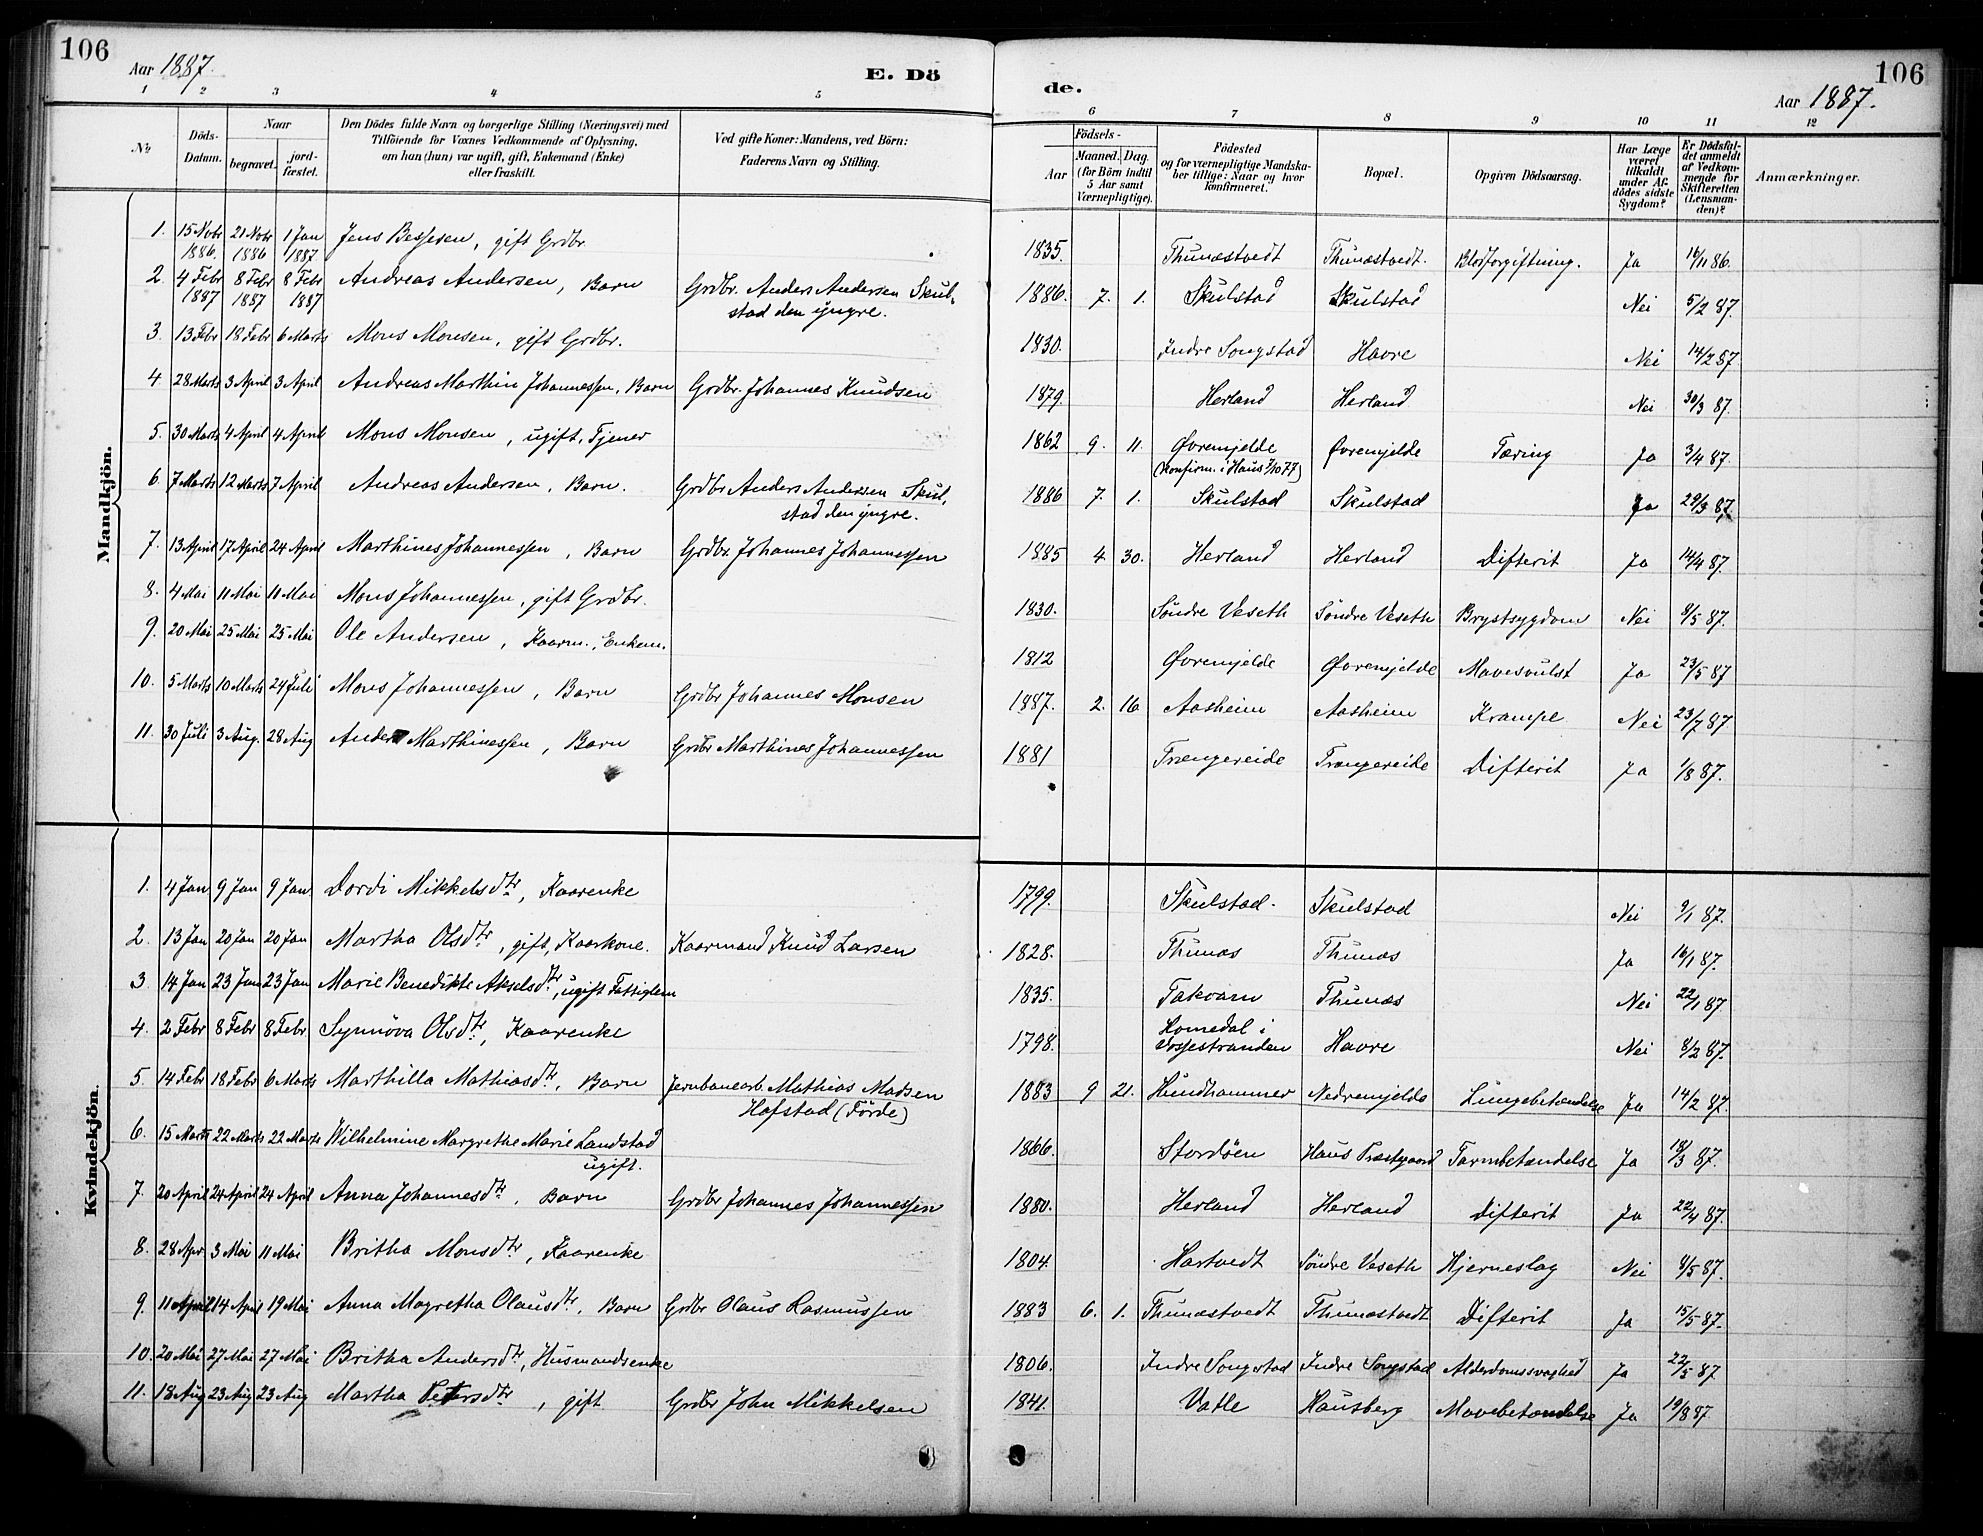 106
Aar 1887.
E. Dö
de.
Aar 1887.
106
1 2 3 4 5 6 7 8 9 10 11 12
№
Döds-Datum.
Naar
begravet.
jordfæstet.
Den Dödes fulde Navn og borgerlige Stilling (Næringsvei) med
Tilföiende for Voxnes Vedkommende af Oplysning,
om han (hun) var ugift, gift, Enkemand (Enke)
eller fraskilt.
Ved gifte Koner: Mandens, ved Börn:
Faderens Navn og Stilling.
Födsels-
Aar
Maaned. Dag.
(for Börn indtil
5 Aar samt
Værnepligtige).
Födested
og for værnepligtige Mandska-
ber tillige: Naar og hvor
konfirmeret.
Bopæl.
Opgiven Dödsaarsag.
Har Læge
været
tilkaldt
under Af-
dödes sidste
Sygdom?
Er Dödsfal-
det anmeldt
af Vedkom-
mende for
Skifteretten
(Lensman-
den)?
Anmærkninger.
Mandkjön.
1. 15 Nobr 1886. 21 Nobr 1886 1 Jan 1887. Jens Bessesen, gift Grdbr. 1835. Thunæstvedt Thunæstvedt. Blodforgiftning. Ja 16/11 86.
2. 4 Febr 1887 8 Febr 1887 8 Febr 1887 Andreas Andersen, Barn Grdbr. Anders Andersen Skulstad den yngre. 1886. 7. 1. Skulstad Skulstad Nei 5/2 87.
3. 13 Febr 18 Febr 6 Marts Mons Monsen, gift Grdbr. 1830. Indre Songstad Havre Nei 14/2 87.
4 28 Marts 3 April 3 April Andreas Marthin Johannessen, Barn Grdbr. Johannes Knudsen 1879. Herland Herland Nei 30/3 87.
5. 30 Marts 4 April 4 April Mons Monsen, ugift, Tjener 1862 9. 11. Øvremjelde (Konfirm. i Haus 7/10 77) Øvremjelde Tæring Ja 3/4 87.
6. 7 Marts 12 Marts 7 April Andreas Andersen, Barn. Grdbr Anders Andersen Skulstad den yngre. 1886 7. 1. Skulstad Skulstad Ja 29/3 87.
7. 13 April 17 April 24 April Marthines Johannessen, Barn Grdbr Johannes Johannessen 1885 4 30. Herland Herland Difterit Ja 14/4 87.
8. 4 Mai 11 Mai 11 Mai Mons Johannessen, gift Grdbr. 1830. Söndre Veseth Söndre Veseth Brystsygdom Nei 8/5 87.
9. 20 Mai 25 Mai 25 Mai Ole Andersen, Kaarm., Enkem. 1812 Øvremjelde Øvremjelde Mavesvulst Ja 23/5 87
10. 5 Marts 10 Marts 24 Juli Mons Johannessen, Barn Grdbr Johannes Monsen 1887. 2. 16 Aasheim Aasheim Krampe Nei 23/7 87
11. 30 Juli 3 Aug. 28 Aug Anders Marthinessen, Barn Grdbr Marthines Johannessen 1881 Trængereide Trængereide Difterit Ja 1/8 87.
Kvindekjön.
1. 4 Jan 9 Jan 9 Jan Dordi Mikkelsdtr, Kaarenke 1799. Skulstad. Skulstad Nei 9/1 87.
2. 13 Jan 20 Jan 20 Jan Martha Olsdtr, gift, Kaarkone. Kaarmand Knud Larsen 1828. Thunæs Thunæs Ja 16/1 87.
3 14 Jan 23 Jan 23 Jan Marie Benedikte Akselsdtr, ugift Fattiglem 1835. Takvam Thunæs Nei 22/1 87.
4. 2 Febr 8 Febr 8 Febr. Synnöva Olsdtr, Kaarenke 1798. Homedal i Vossestranden Havre Nei 8/2 87.
5. 14 Febr 18 Febr 6 Marts Marthilla Mathiasdtr, Barn Jernbanearb. Mathias Madsen Hafstad (Förde) 1883 9 21. Hundhammer Nedremjelde Lungebetændelse Ja 14/2 87.
6. 15 Marts 22 Marts 22 Marts Wilhelmine Margrethe Marie Landstad ugift. 1866. Stordöen Haus Præstgaard Tarmbetændelse Ja 18/3 87.
7. 20 April 24 April 24 April Anna Johannesdtr, Barn Grdbr Johannes Johannessen 1880. Herland Herland Difterit Ja 22/4 87.
8. 28 Apr 3 Mai 11 Mai Britha Monsdtr, Kaarenke 1804. Hartvedt Söndre Veseth Hjerneslag Nei 8/5 87.
9. 11 April 14 April 19 Mai Anna Magretha Olausdtr, Barn Grdbr Olaus Rasmussen 1883 6. 1. Thunæstvedt Thunæstvedt Difterit Ja 15/5 87.
10. 20 Mai 27 Mai 27 Mai Britha Andersdtr, Husmandsenke 1806. Indre Songstad Indre Songstad Alderdomssvaghed Ja 22/5 87
11. 18 Aug 23 Aug 23 Aug Martha Petersdtr, gift Grdbr John Mikkelsen 1841. Vatle Hausberg Mavebetændelse Ja 19/8 87.